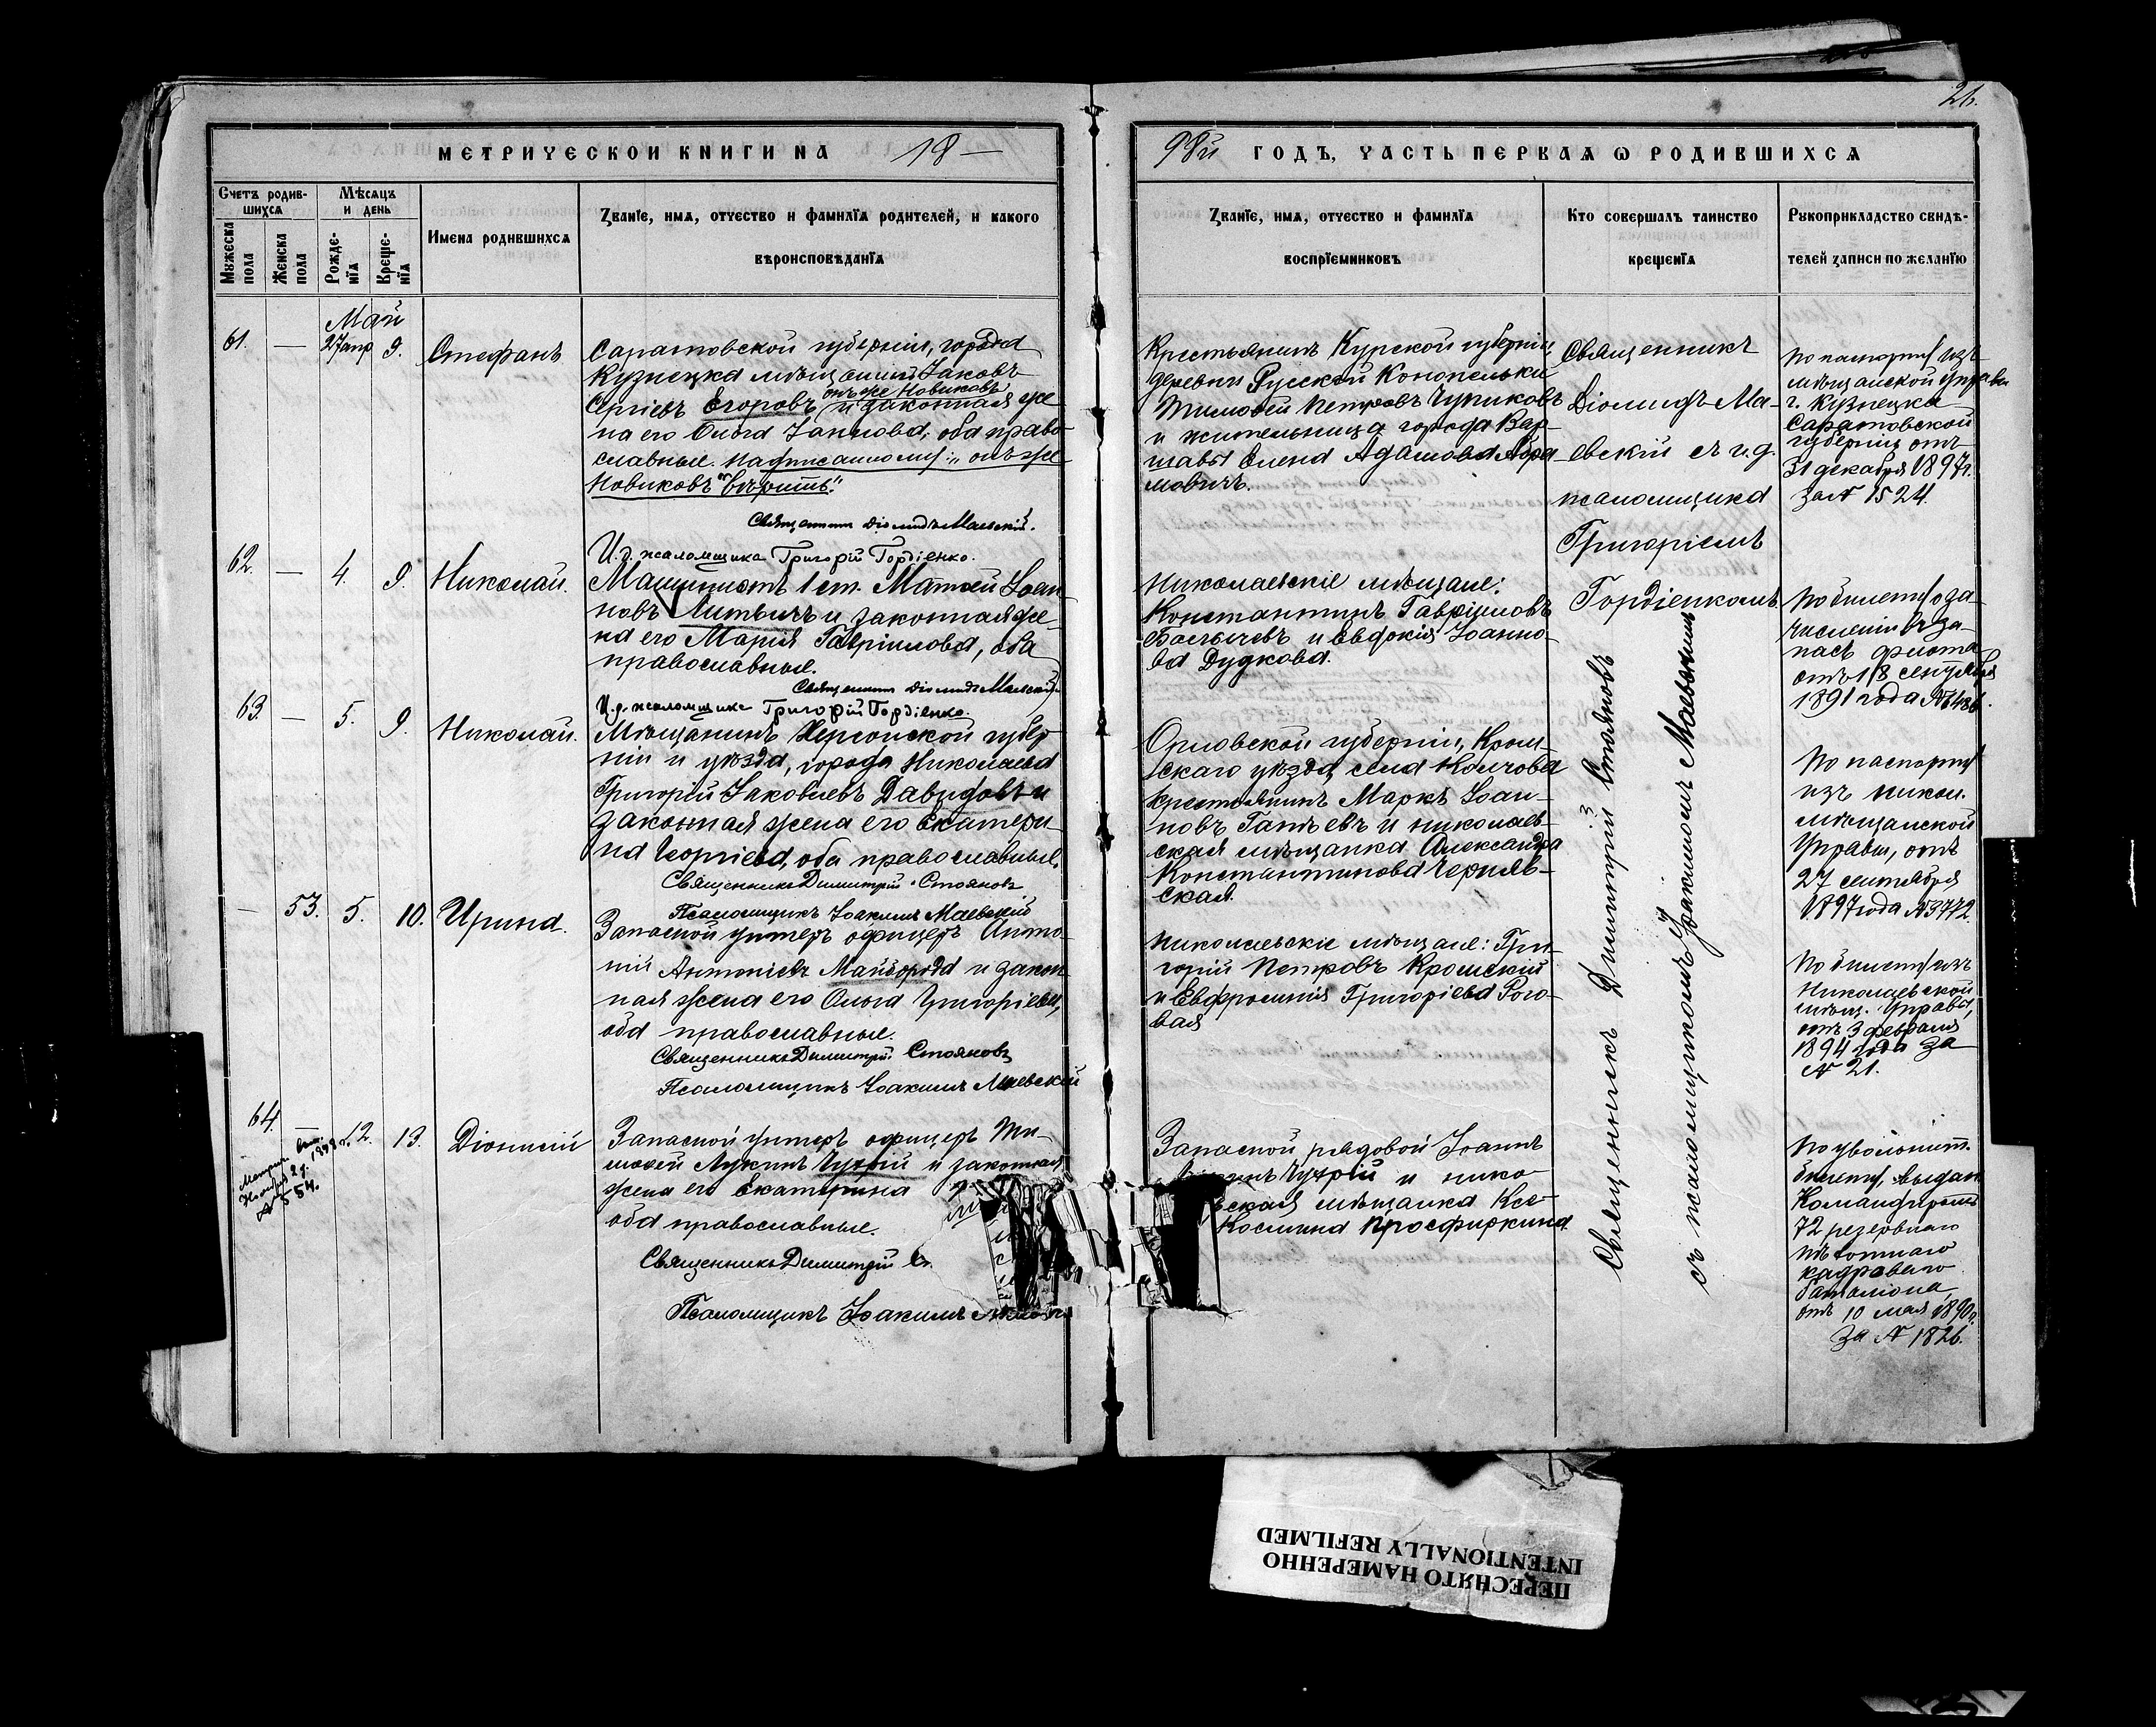 26.
МЕТРИЧЕСКОЙ КНИГИ НА 18 —
98й ГОДЪ, ЧАСТЬ ПЕРВАЯ О РОДИВШИХСЯ
Счетъ родив-
шихся
Мужеска
пола
Женска
пола
Мѣсяцъ
и день
Рожде-
нія
Креще-
нія
Имена родившихся
Званіе, имя, отчество и фамилія родителей, и какого
вѣроисповѣданія
Званіе, имя, отчество и фамилія
воспріемниковъ
Кто совершалъ таинство
крещенія
Рукоприкладство свидѣ-
телей записи по желанію
Май
61. — 27 апр 9. Стефанъ
Саратовской губерніи, города
Кузнецка мѣщанинъ Іаковъ
онъ же Новиковъ
Сергіевъ Егоровъ и законная же-
на его Ольга, оба право-
славные. Надписанному: „онъ же
Новиковъ" вѣрить.
Священникъ Діомидъ Маевскій.
И. д. псаломщика Григорій Гордіенко.
Крестьянинъ Курской губерніи,
деревни Русской Конопельки
Тимофей Петровъ Чуриковъ
и жительница города Вар-
шавы Елена Адамова Абра-
мовичъ.
Священникъ
Діомидъ Ма-
евскій съ и. д.
псаломщика
Григоріемъ
Гордіенкомъ.
По паспорту изъ
мѣщанской управы
г. Кузнецка
Саратовской
губерніи отъ
31 декабря 1897 г.
за № 1524.
62. — 4. 9. Николай.
Машинистъ 1 ст. Матѳей Іоан-
новъ Литвинъ и законная же-
на его Марія Гавріилова, оба
православные.
Священникъ Діомидъ Маевскій
И. д. псаломщика Григорій Гордіенко.
Николаевскіе мѣщане:
Константинъ Гавріиловъ
и Евдокія Іоанно-
ва Дудкова.
По билету о за-
численіи въ за-
пасъ флота
отъ 18 сентября
1891 года № 6486.
63. — 5. 9. Николай.
Мѣщанинъ Херсонской губер-
ніи и уѣзда, города Николаева
Григорій Іаковлевъ Давыдовъ и
законная жена его Екатери-
на Георгіева, оба православные.
Священникъ Димитрій Стояновъ
Псаломщикъ Іоакимъ Маевскій
Орловской губерніи, Кром-
скаго уѣзда, села
крестьянинъ Маркъ Іоан-
новъ и николаев-
ская мѣщанка Александра
Константинова Черняв-
ская.
Священникъ Димитрій Стояновъ
съ псаломщикомъ Іоакимомъ Маевскимъ
По паспорту
изъ никол.
мѣщанской
Управы, отъ
27 сентября
1897 года № 3772.
— 53. 5. 10. Ирина.
Запасной унтеръ офицеръ Анто-
ній Антоніевъ Майборода и закон-
ная жена его Ольга Григоріева,
оба православные.
Священникъ Димитрій Стояновъ
Псаломщикъ Іоакимъ Маевскій
Николаевскіе мѣщане: Гри-
горій Петровъ Кромскій
и Евфросинія Григоріева Рого-
вая
По билету изъ
Николаевской
мѣщ. Управы,
отъ 3 февраля
1894 года за
№ 21.
64. — 12. 13. Діонисій
1898 г.
№ 554.
Запасной унтеръ офицеръ Ти-
моѳей Лукинъ Чухрій и законная
жена его Екатерина
оба православные.
Священникъ Димитрій
Псаломщикъ Іоакимъ
Запасной рядовой Іоаннъ
Чухрій и нико-
ская мѣщанка
Космина Просфиркина
По увольнит.
билету, выдан.
Командиромъ
72 резервнаго
пѣхотнаго
кадроваго
баталіона,
отъ 10 мая 1890 г.
за № 1826.
ПЕРЕСНЯТО НАМЕРЕННО
INTENTIONALLY REFILMED